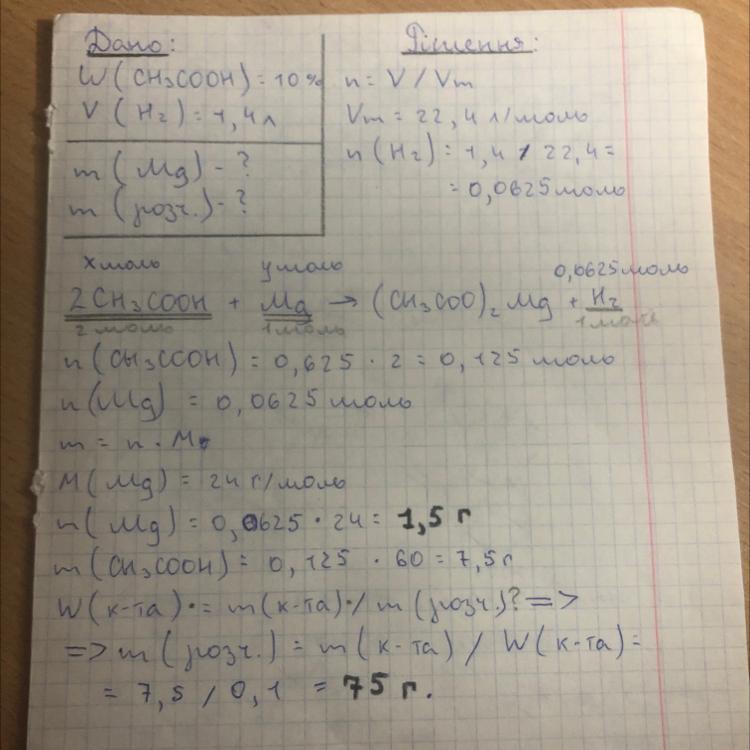 Дано:
W(CH₃COOH) = 10%
V(H₂) = 1,4 л
m(Mg) - ?
m(розч.) - ?
Рішення:
n = V / Vm
Vm = 22,4 л/моль
n(H₂) = 1,4 / 22,4 =
= 0,0625 моль
x моль y моль 0,0625 моль
2CH₃COOH + Mg → (CH₃COO)₂Mg + H₂
2 моль 1 моль 1 моль
n(CH₃COOH) = 0,625 · 2 = 0,125 моль
n(Mg) = 0,0625 моль
m = n · M
M(Mg) = 24 г/моль
n(Mg) = 0,0625 · 24 = 1,5 г
m(CH₃COOH) = 0,125 · 60 = 7,5 г
W(к-та) = m(к-та) / m(розч.)? =>
=> m(розч.) = m(к-та) / W(к-та) =
= 7,5 / 0,1 = 75 г.